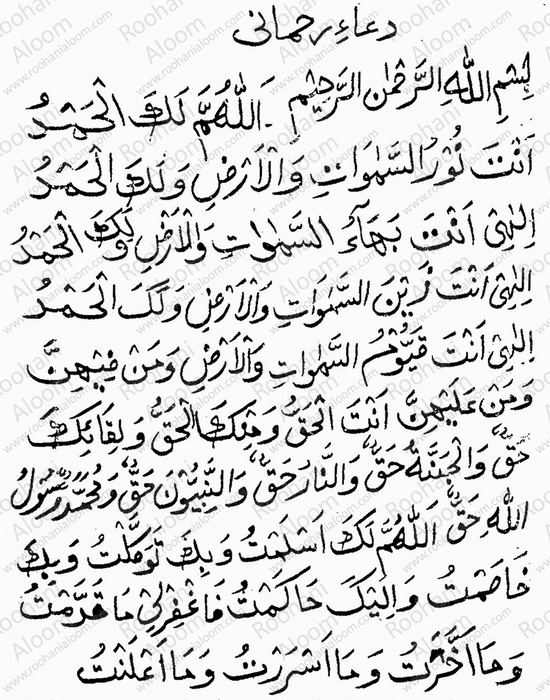 دعاءِ رحمانی
بِسْمِ اللّٰهِ الرَّحْمٰنِ الرَّحِيْمِ ۔ اَللّٰهُمَّ لَكَ الْحَمْدُ
اَنْتَ نُوْرُ السَّمٰوَاتِ وَالْاَرْضِ وَلَكَ الْحَمْدُ
اِلٰهِیْ اَنْتَ بَهَآءُ السَّمٰوَاتِ وَالْاَرْضِ وَلَكَ الْحَمْدُ
اِلٰهِیْ اَنْتَ زَيْنَ السَّمٰوَاتِ وَالْاَرْضِ وَلَكَ الْحَمْدُ
اِلٰهِیْ اَنْتَ قَيُّوْمُ السَّمٰوَاتِ وَالْاَرْضِ وَمَنْ فِيْهِنَّ
وَمَنْ عَلَيْهِنَّ اَنْتَ الْحَقُّ وَمِنْكَ الْحَقُّ وَلِقَائِكَ
حَقٌّ وَالْجَنَّةُ حَقٌّ وَالنَّارُ حَقٌّ وَالنَّبِيُّوْنَ حَقٌّ وَمُحَمَّدٌ رَّسُوْلُ
اللّٰهِ حَقٌّ اَللّٰهُمَّ لَكَ اَسْلَمْتُ وَبِكَ تَوَكَّلْتُ وَبِكَ
خَاصَمْتُ وَاِلَيْكَ حَاكَمْتُ فَاغْفِرْلِیْ مَا قَدَّمْتُ
وَمَا اَخَّرْتُ وَمَا اَسْرَرْتُ وَمَا اَعْلَنْتُ
Roohani
Aloom
www.roohanialoom.com